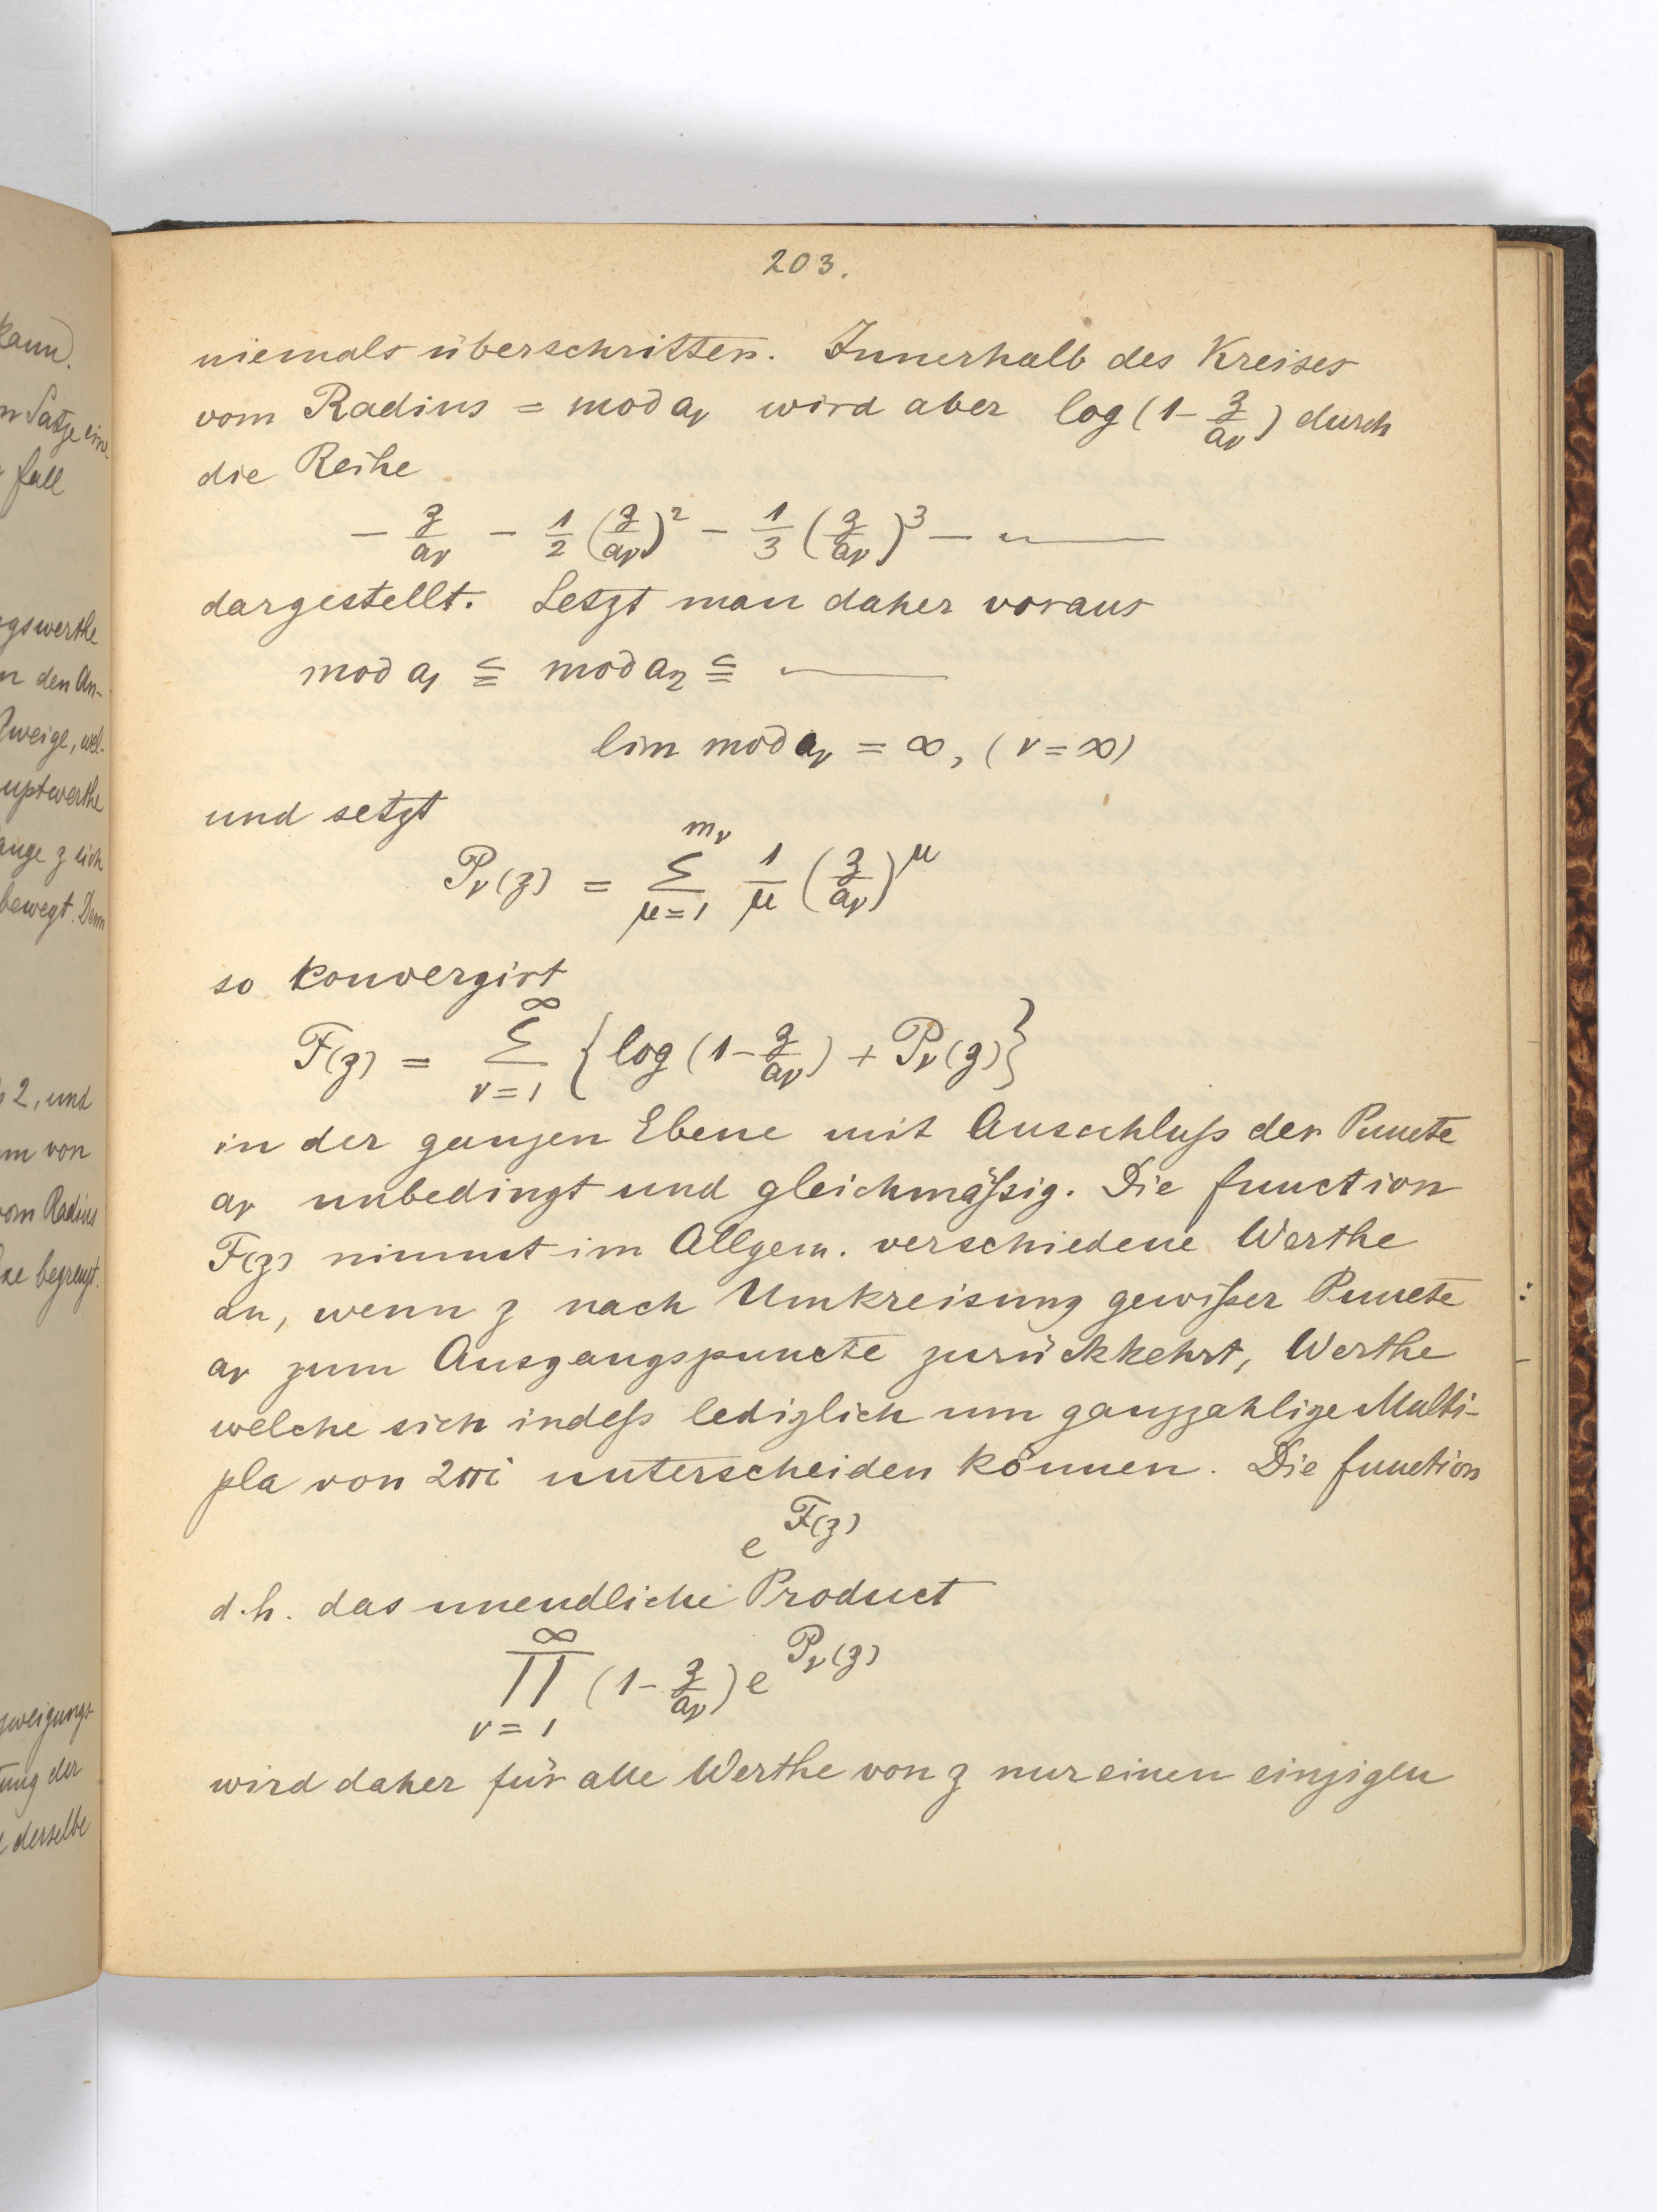 kann).
n Satze ein-
fall
ngswerthe
n den An-
Zweige, wel-
uptwerthe
ange z sich
bewegt. Denn
s 2, und
m von
vom Radius
xe begrenzt.
zweigungs-
tung der
derselbe
203.
niemals überschritten. Innerhalb des Kreises
vom Radius = mod aν wird aber log (1 - z/aν) durch
die Reihe
- z/aν - 1/2 (z/aν)² - 1/3 (z/aν)³ - ———
dargestellt. Setzt man daher voraus
mod a₁ ≦ mod a₂ ≦ ———
lim mod aν = ∞, (ν = ∞)
und setzt
Pν(z) = Σ_{μ=1}^{mν} 1/μ (z/aν)^μ
so konvergirt
F(z) = Σ_{ν=1}^{∞} {log (1 - z/aν) + Pν(z)}
in der ganzen Ebene mit Ausschluß der Puncte
aν unbedingt und gleichmäßig. Die function
F(z) nimmt im Allgem. verschiedene Werthe
an, wenn z nach Umkreisung gewißer Puncte
aν zum Ausgangspuncte zurückkehrt, Werthe
welche sich indeß lediglich um ganzzahlige Multi-
pla von 2πi unterscheiden können. Die function
e^{F(z)}
d.h. das unendliche Product
∏_{ν=1}^{∞} (1 - z/aν) e^{Pν(z)}
wird daher für alle Werthe von z nur einen einzigen